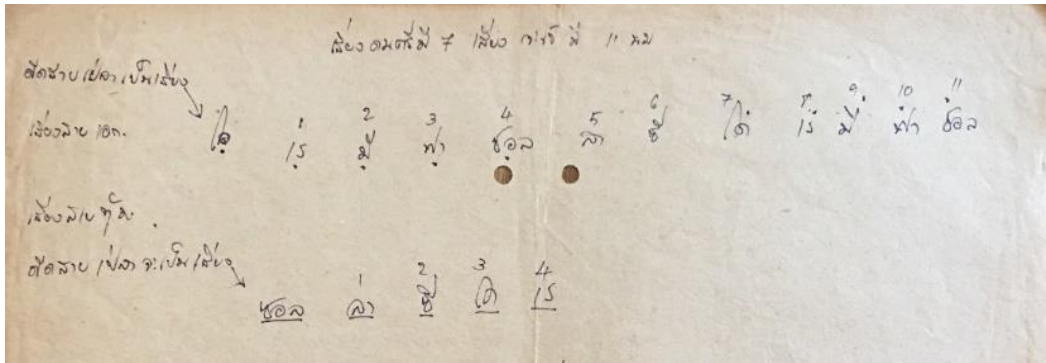 เสียงดนตรีมี 7 เสียง กระจับปี่ มี 11 นม
ดีดสายเปล่าเป็นเสียง
1 2 3 4 5 6 7 8 9 10 11
เสียงสายเอก. โด เร มี ฟา ซอล ลา ซี โด เร มี ฟา ซอล
เสียงสายทุ้ม.
ดีดสายเปล่าจะเป็นเสียง
1 2 3 4
ซอล ลา ซี โด เร